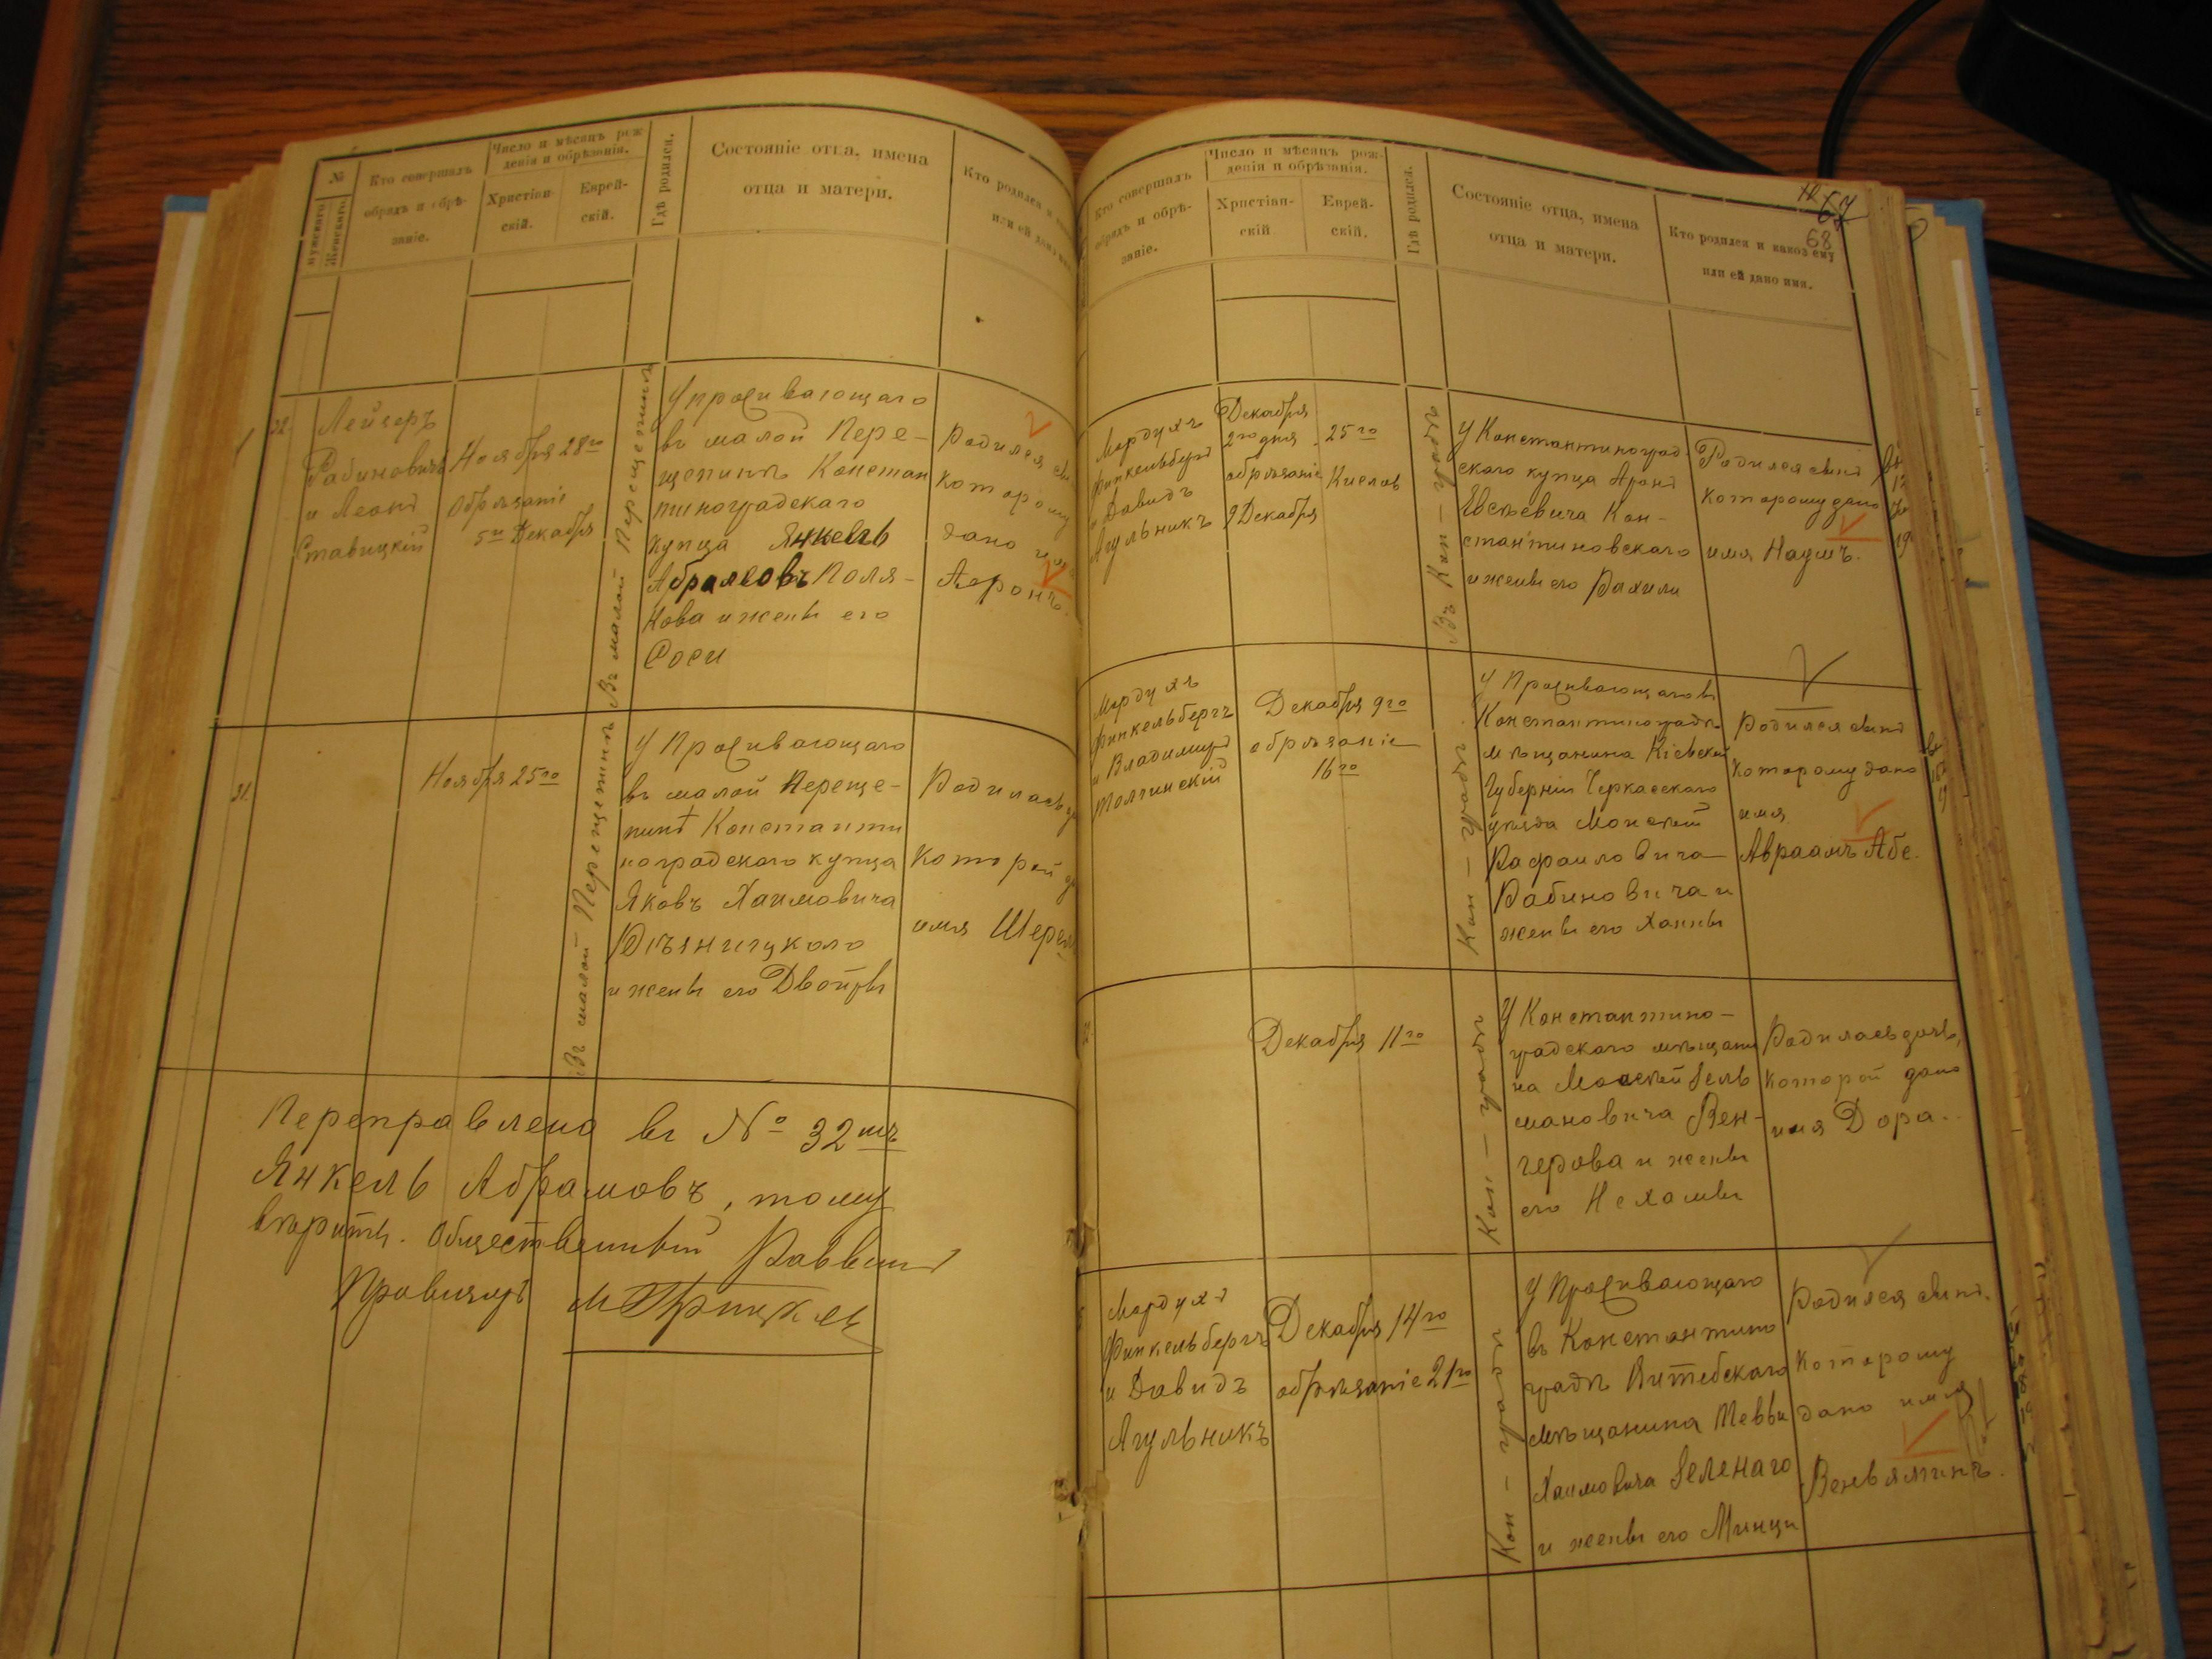 №
мужескаго
Женскаго
Кто совершалъ
обрядъ и обрѣ-
заніе.
Число и мѣсяцъ рож
денія и обрѣзанія.
Христіан-
скій.
Еврей-
скій.
Гдѣ родился.
Состояніе отца, имена
отца и матери.
Кто родился и
или ей дано
32
Лейзеръ
Рабиновичъ
и Леонъ
Ставицкій
Ноября 28го
Обрѣзаніе
5го Декабря
Въ малой Перещепинѣ
У проживающаго
въ малой Пере-
щепинѣ Констан
тиноградскаго
купца Янкель
Абрамовъ Поля-
кова и жены его
Соси
Родился
которому
дано
Аронъ.
31.
Ноября 25го
Въ малой Перещепинѣ
У Проживающаго
въ малой Переще-
пинѣ Константи
ноградскаго купца
Яковъ Хаимовича
и жены его Двойры
Родилась
которой
имя
Переправлено въ № 32мъ
Янкель Абрамовъ, тому
вѣрить. Общественный Раввинъ
Провизоръ
68
Кто совершалъ
обрядъ и обрѣ-
заніе.
Число и мѣсяцъ рож-
денія и обрѣзанія.
Христіан-
скій
Еврей-
скій.
Гдѣ родился.
Состояніе отца, имена
отца и матери.
Кто родился и какое ему
или ей дано имя.
Мордухъ
Финкельбергъ
и Давидъ
Агульникъ
Декабря
2го дня
обрѣзаніе
9 Декабря
25го
Кислевъ
Въ Кон-градѣ
У Константиноград
скаго купца Аронъ
Евсѣевича Кон-
стантиновскаго
и жены его Рахили
Родился сынъ
которому дано
имя Наумъ.
Мордухъ
Финкельбергъ
и Владимиръ
Толчинскій
Декабря 9го
обрѣзаніе
16го
Кон-градѣ
У Проживающаго въ
Константиноградѣ
мѣщанина Кіевской
Губерніи Черкасскаго
уѣзда Моисѣй
Рафаиловича
Рабиновича и
жены его Ханны
Родился сынъ
которому дано
имя
Авраамъ Абе.
Декабря 11го
Кон-градѣ
У Константино-
градскаго мѣщани
на Моисѣй Зель
мановича Вен-
герова и жены
его Нехамы
Родилась дочь,
которой дано
имя Дора.
Мордухъ
Финкельбергъ
и Давидъ
Агульникъ
Декабря 14го
обрѣзаніе 21го
Кон-градѣ
У Проживающаго
въ Константино
градѣ Витебскаго
мѣщанина Певвы
Хаимовича Зеленаго
и жены его Минци
Родился сынъ.
которому
дано имя
Веньяминъ.